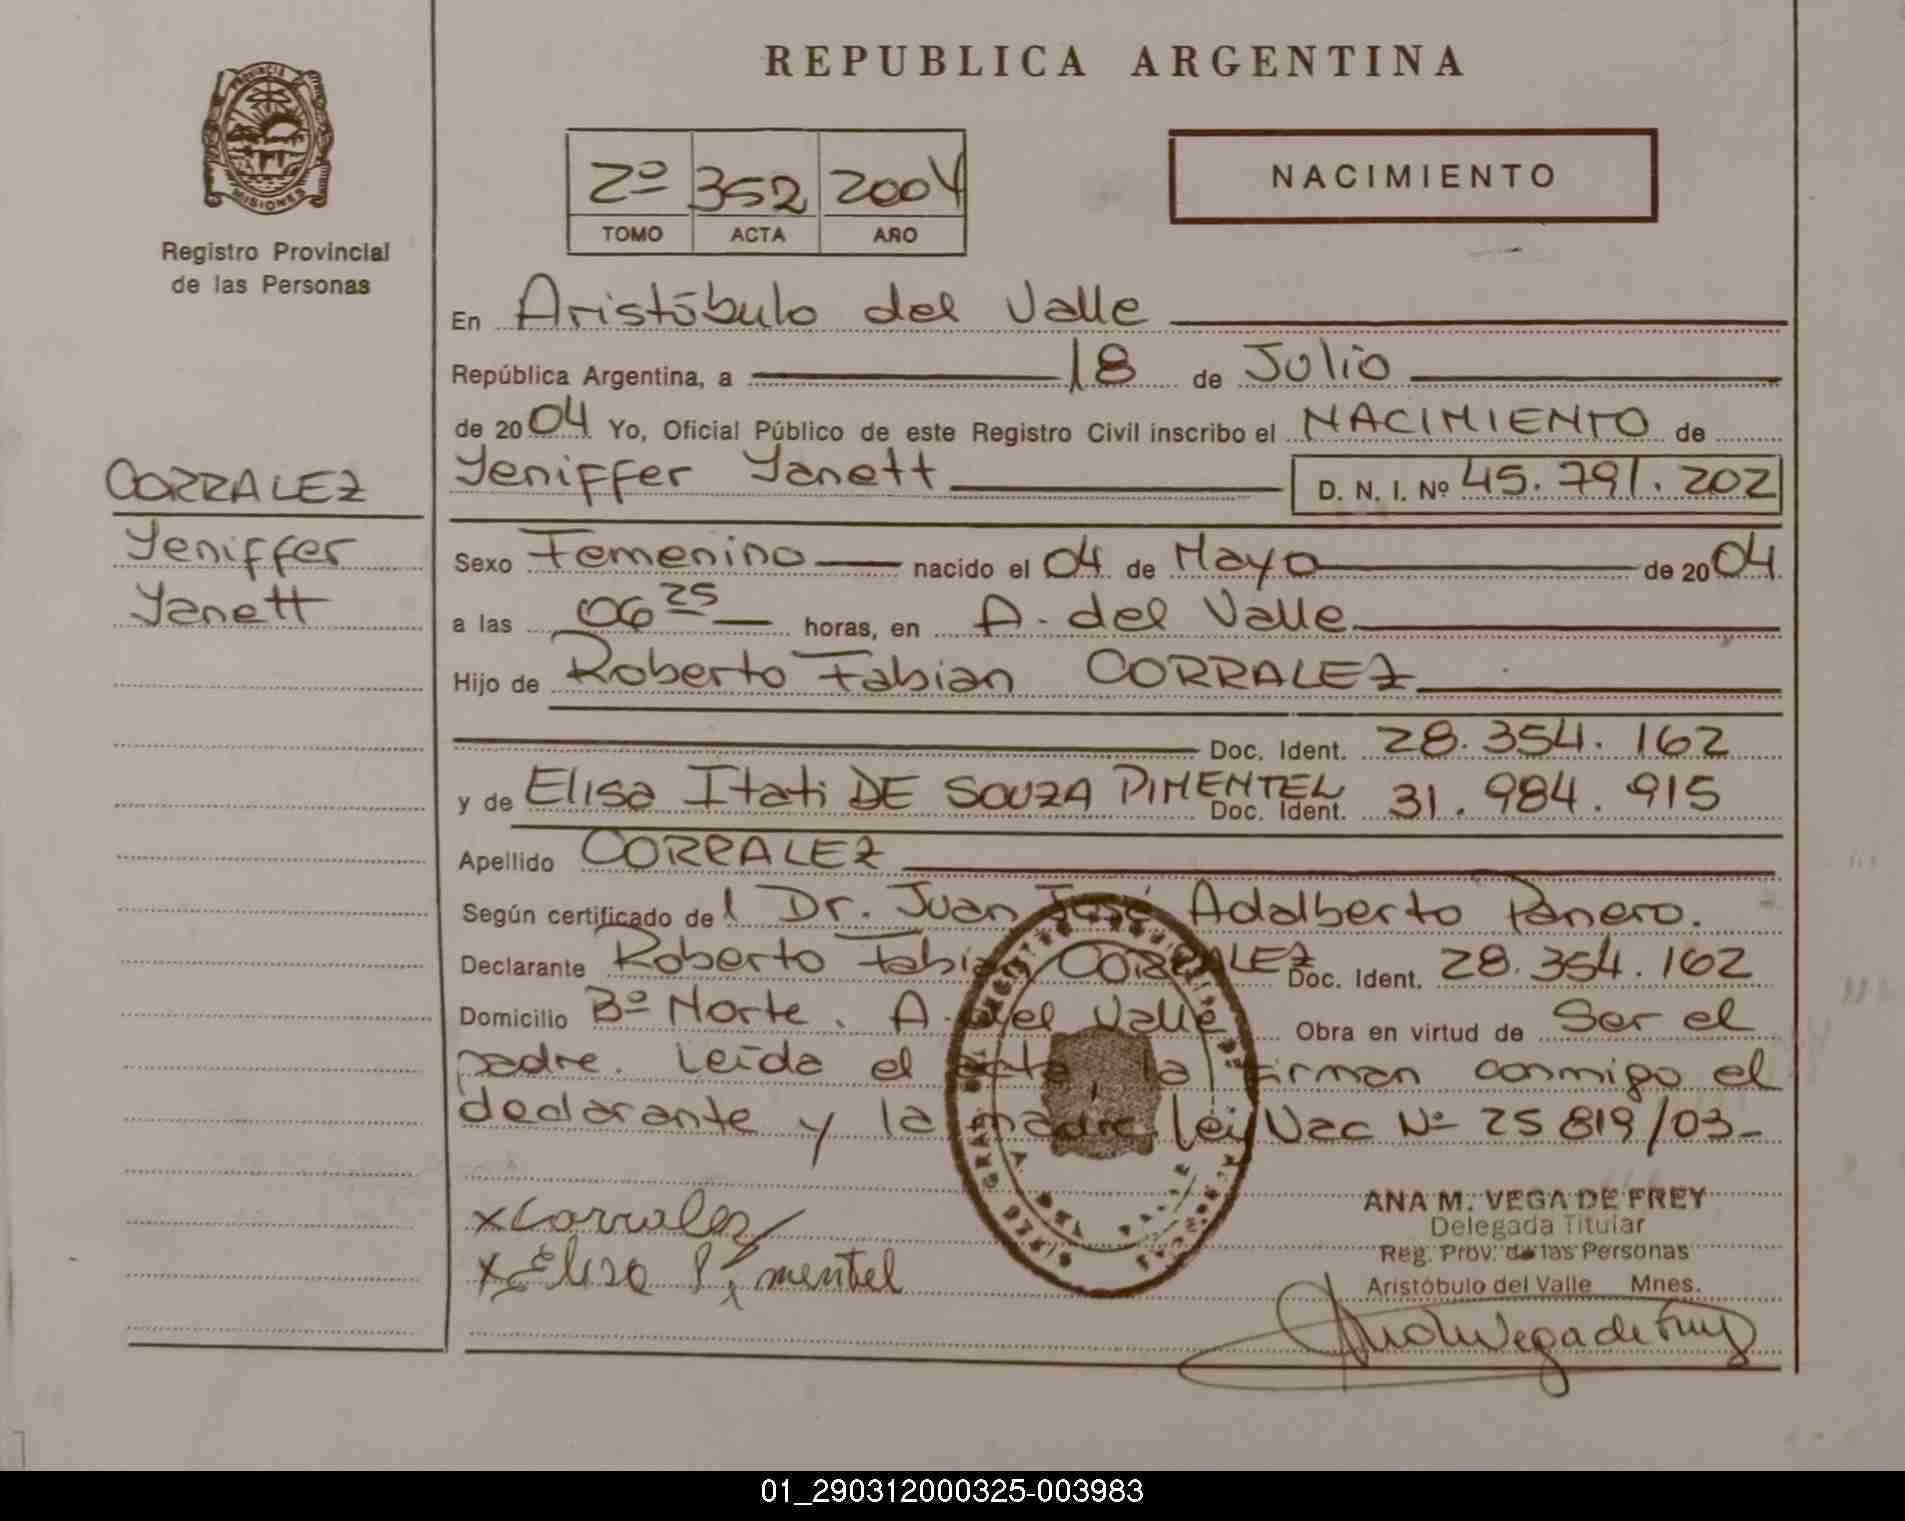 REPUBLICA ARGENTINA
PROVINCIA DE MISIONES
Registro Provincial
de las Personas
2º 352 2004
TOMO ACTA AÑO
NACIMIENTO
CORRALEZ
Yeniffer
Yanett
En Aristóbulo del Valle
República Argentina, a 18 de Julio
de 2004 Yo, Oficial Público de este Registro Civil inscribo el NACIMIENTO de
Yeniffer Yanett D. N. I. Nº 45.791.202
Sexo Femenino nacido el 04 de Mayo de 2004
a las 06 25 horas, en A. del Valle
Hijo de Roberto Fabian CORRALEZ
Doc. Ident. 28.354.162
y de Elisa Itati DE SOUZA PIMENTEL Doc. Ident. 31.984.915
Apellido CORRALEZ
Según certificado del Dr. Juan José Adalberto Panero.
Declarante Roberto Fabian CORRALEZ Doc. Ident. 28.354.162
Domicilio Bº Norte. A. del Valle Obra en virtud de Ser el
padre. Leída el acta la firman conmigo el
declarante y la madre. lei Nac Nº 25819/03-
x Corralez
x Elisa Pimentel
ANA M. VEGA DE FREY
Delegada Titular
Reg. Prov. de las Personas
Aristóbulo del Valle Mnes.
01_290312000325-003983